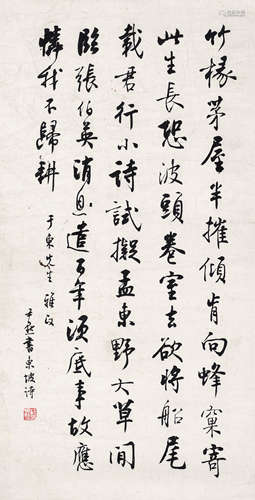 竹椽茅屋半摧傾肯向蜂窠寄
此生長恐波頭卷室去欲將船尾
載君行小詩試擬孟東野大草閒
臨張伯英消息遣百年須底事故應
憐我不歸耕 于東先生雅正
尹默書東坡詩